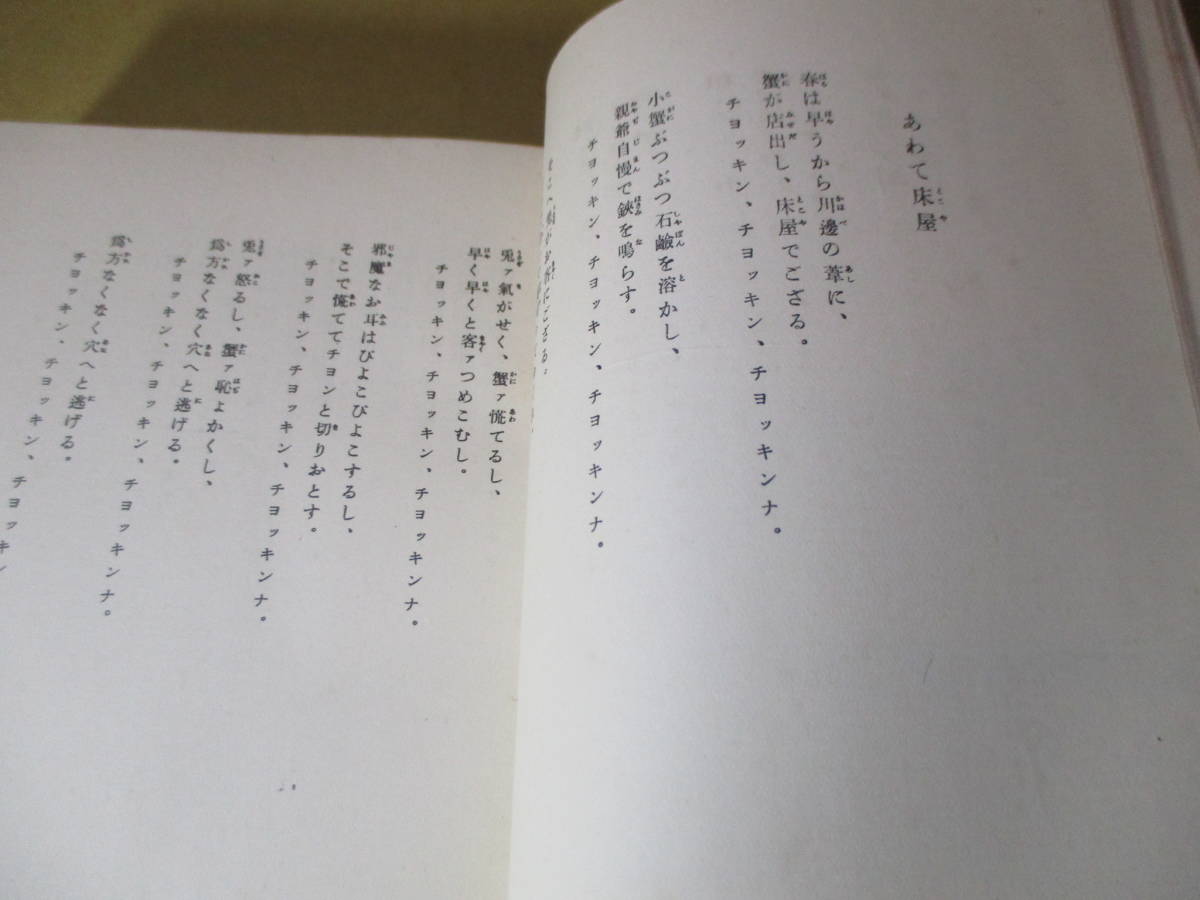 あわて床屋
春は早うから川邊の葦に、
蟹が店出し、床屋でござる。
チヨッキン、チヨッキン、チヨッキンナ。
小蟹ぶつぶつ石鹼を溶かし、
親爺自慢で鋏を鳴らす。
チヨッキン、チヨッキン、チヨッキンナ。
にござる。
兎ァ氣がせく、蟹ァ慌てるし、
早く早くと客ァつめこむし。
チヨッキン、チヨッキン、チヨッキンナ。
邪魔なお耳はぴよこぴよこするし、
そこで慌ててチヨンと切りおとす。
チヨッキン、チヨッキン、チヨッキンナ。
兎ァ怒るし、蟹ァ恥よかくし、
爲方なくなく穴へと逃げる。
チヨッキン、チヨッキン、チヨッキンナ。
爲方なくなく穴へと逃げる。
チヨッキン、チヨッキン、チヨッキン